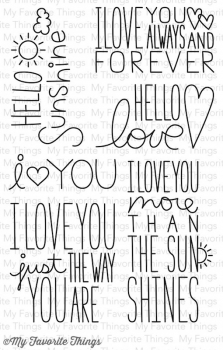 HELLO
Sunshine
I LOVE YOU
ALWAYS AND
FOREVER
HELLO
love
i YOU
I LOVE YOU
more
THAN
THE SUN
SHINES
I LOVE YOU
just THE WAY
YOU ARE
©My Favorite Things
My Favorite Things